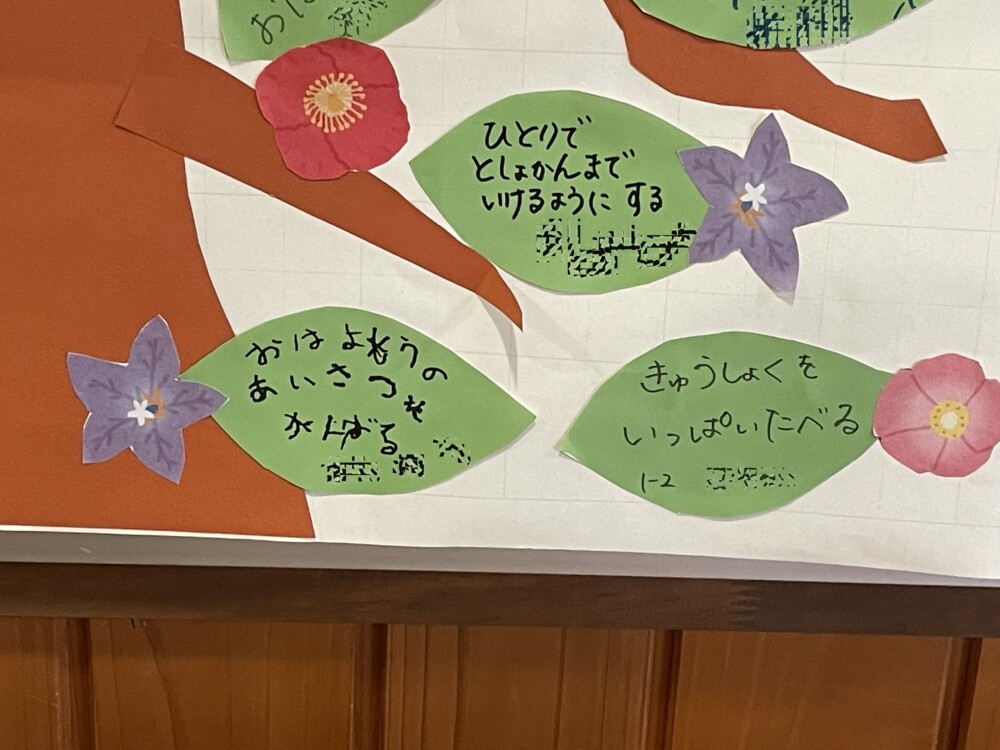 ひとりで
としょかんまで
いけるようにする
おはようの
あいさつを
がんばる
きゅうしょくを
いっぱいたべる
1-2